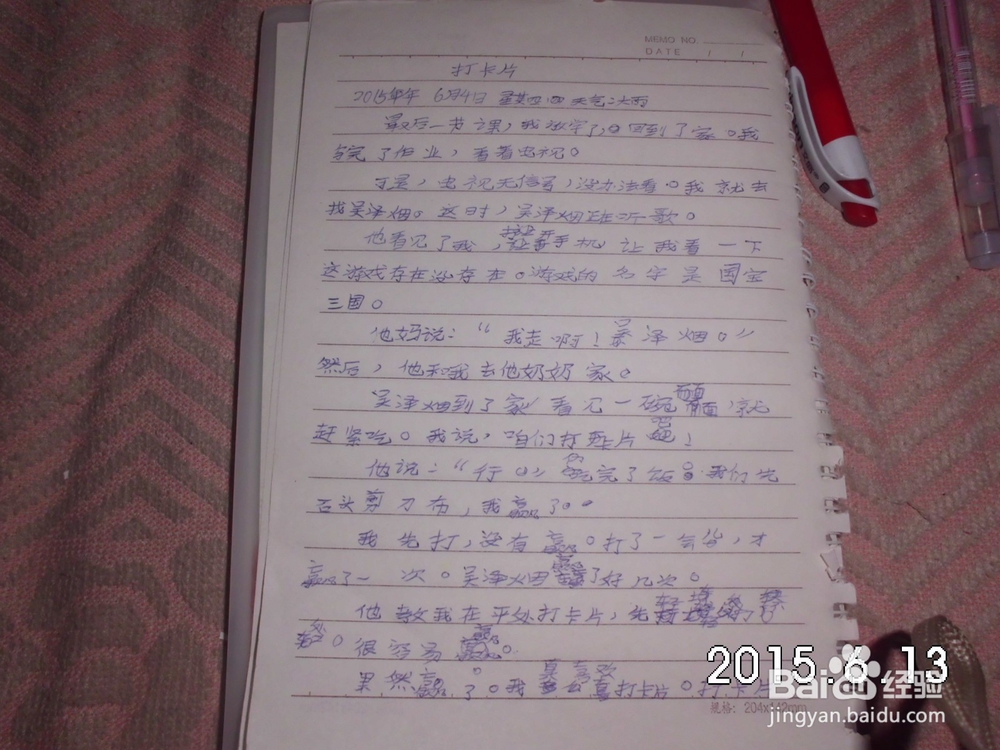 MEMO NO.
DATE / /
打卡片
2015年 6月4日 星期四 天气:大雨
最后一节课,我放学了,回到了家。我
写完了作业,看着电视。
于是,电视无信号,没办法看。我就去
找吴泽烟。这时,吴泽烟在听歌。
他看见了我,手机让我看一下
这游戏存在没存在。游戏的名字是国宝
三国。
他妈说:“我走啊!吴泽烟。”
然后,他和我去他奶奶家。
吴泽烟到了家,看见一碗面,就
赶紧吃。我说,咱们打卡片吧!
他说:“行。”吃完了饭。我们先
石头剪刀布,我赢了。
我先打,没有赢。打了一会儿,才
赢了一次。吴泽烟赢了好几次。
他教我在平处打卡片,先
轻。很容易赢。
果然赢了。我真喜欢打卡片。打卡片
规格: 204x142mm
2015.6.13
Baidu 经验
jingyan.baidu.com